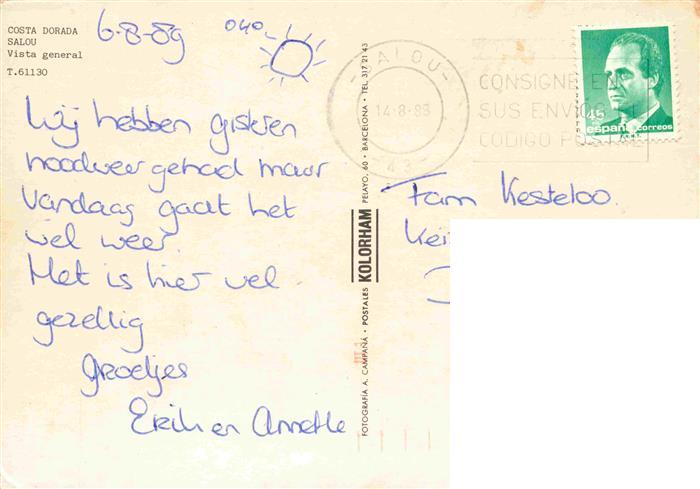 COSTA DORADA
SALOU
Vista general
T.61130
6-8-89 040
Wij hebben gisteren
noodweer gehad maar
vandaag gaat het
wel weer.
Het is hier wel
gezellig
Groetjes
Erik en Annette
FOTOGRAFIA A. CAMPAÑÁ - POSTALES KOLORHAM PELAYO, 60 • BARCELONA • TEL. 317 21 43
SALOU
14-8-89
43
CONSIGNE EN
SUS ENVIOS EL
CODIGO POSTAL
45
españa correos
Fam Kesteloo.